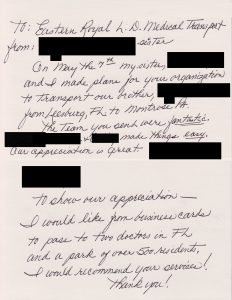 To: Eastern Royal L.D. Medical Transport
from: sister
On May the 7th my sister,
and I made plans for your organization
to transport our brother,
from Leesburg, FL to Montrose PA.
The team you sent were fantastic.
made things easy.
Our appreciation is great
To show our appreciation —
I would like from business cards
to pass to two doctors in FL
and a park of over 500 residents.
I would recommend your services!
Thank you!